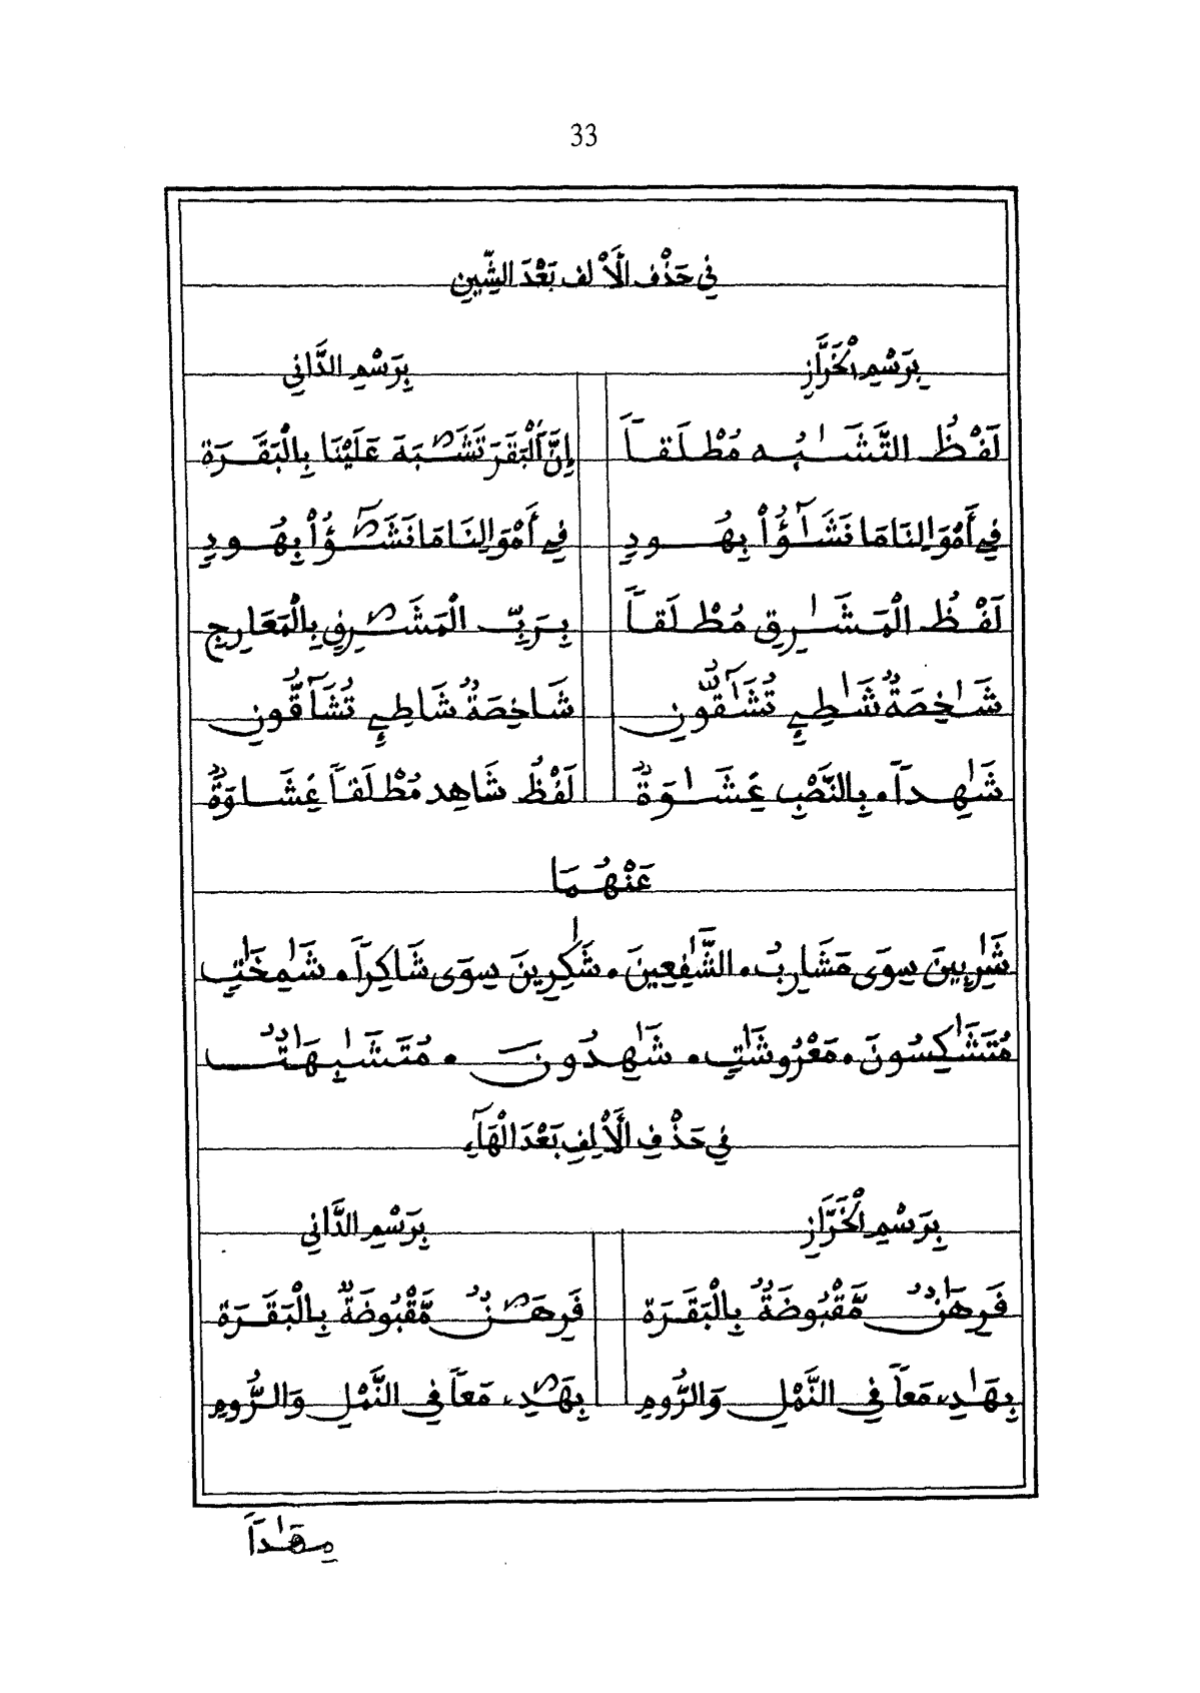 33
فِي حَذْفِ الْأَلِفِ بَعْدَ الشِّينِ
بِرَسْمِ الْخَرَّازِ بِرَسْمِ الدَّانِي
لَفْظُ التَّشَٰبُه مُطْلَقاً إِنَّ اَلْبَقَرَ تَشَٰبَهَ عَلَيْنَا بِالْبَقَرَة
فِي أَمْوَالِنَا مَا نَشَٰٓؤُاْ بِهُودٍ فِي أَمْوَالِنَا مَا نَشَٰٓؤُاْ بِهُودٍ
لَفْظُ الْمَشَٰرِقِ مُطْلَقاً بِرَبِّ الْمَشَٰرِقِ بِالْمَعَارِجِ
شَٰخِصَةٌ شَٰطِئِ تُشَٰٓقُّونِ شَاخِصَةٌ شَاطِئِ تُشَآقُّونِ
شَٰهِداً • بِالنَّصْبِ غِشَٰوَةٌ لَفْظُ شَاهِد مُطْلَقاً غِشَاوَةٌ
عَنْهُمَا
شَٰرِبِينَ سِوَى مَشَارِبُ • الشَّٰفِعِينَ • شَٰكِرِينَ سِوَى شَاكِراً • شَٰمِخَٰتٍ
مُتَشَٰكِسُونَ • مَعْرُوشَٰتٍ • شَٰهِدُونَ • مُتَشَٰبِهَٰتٌ
فِي حَذْفِ الْأَلِفِ بَعْدَ الْهَآءِ
بِرَسْمِ الْخَرَّازِ بِرَسْمِ الدَّانِي
فَرِهَٰنٌ مَّقْبُوضَةٌ بِالْبَقَرَة فَرِهَٰنٌ مَّقْبُوضَةٌ بِالْبَقَرَة
بِهَٰدِ، مَعاً فِي النَّمْلِ وَالرُّومِ بِهَٰدِ، مَعاً فِي النَّمْلِ وَالرُّومِ
مِهَٰداً